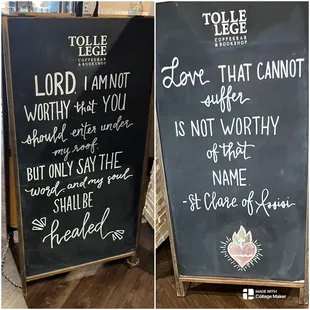 TOLLE
LEGE
COFFEEBAR
& BOOKSHOP
LORD, I AM NOT
WORTHY that YOU
should enter under
my roof.
BUT ONLY SAY THE
word and my soul
SHALL BE
healed
TOLLE
LEGE
COFFEEBAR
& BOOKSHOP
Love THAT CANNOT
suffer
IS NOT WORTHY
of that
NAME.
-St Clare of Assisi
MADE WITH
Collage Maker